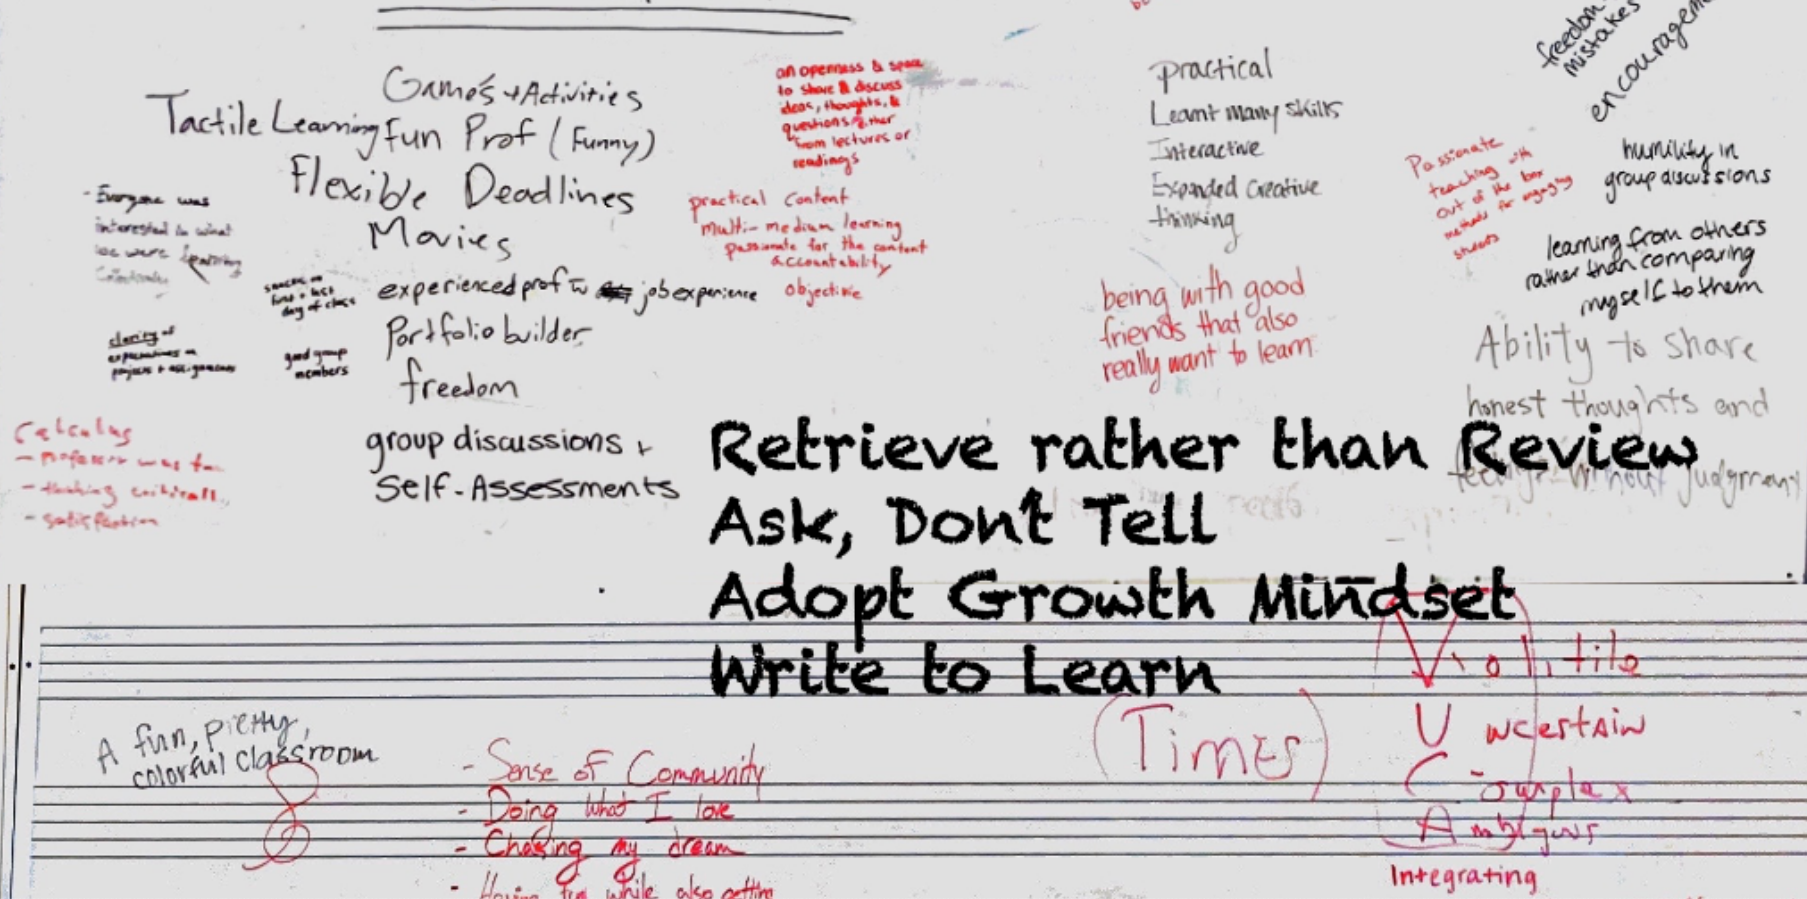 Games + Activities
Tactile Learning
fun Prof (Funny)
Flexible Deadlines
Movies
experienced prof w job experience
Portfolio builder
freedom
group discussions +
Self-Assessments
- Everyone was
interested in what
we were learning
snacks on
first + last
day of class
clarity of
expectations on
projects + assignments
good group
members
Calculus
- professor was
- thinking critically
- satisfaction
an openness & space
to share & discuss
ideas, thoughts, &
questions either
from lectures or
readings
practical content
multi-medium learning
passionate for the content
accountability
objective
practical
Learnt many skills
Interactive
Expanded Creative
thinking
being with good
friends that also
really want to learn
freedom
mistakes
encouragem
Passionate
teaching with
out of the box
methods for engaging
students
humility in
group discussions
learning from others
rather than comparing
myself to them
Ability to share
honest thoughts and
feelings without judgment
Retrieve rather than Review
Ask, Don't Tell
Adopt Growth Mindset
Write to Learn
A fun, pretty,
colorful classroom
- Sense of Community
- Doing what I love
- Chasing my dream
- Having fun while also getting
(Times)
Volitile
Uncertain
Complex
Ambigous
Integrating